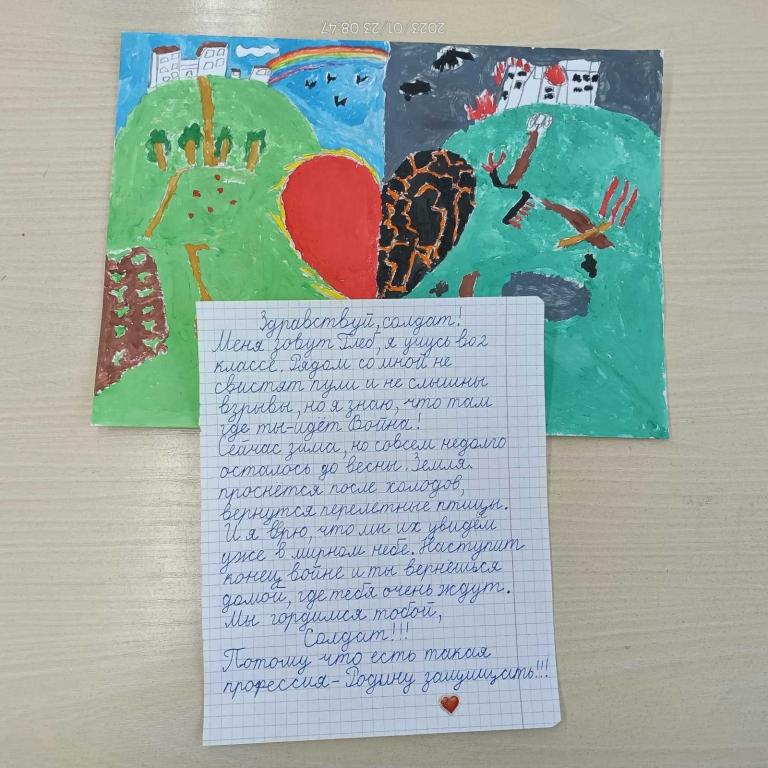 2023/01/23 08:47
Здравствуй, солдат!
Меня зовут Глеб, я учусь во 2
классе. Рядом со мной не
свистят пули и не слышны
взрывы, но я знаю, что там
где ты - идёт Война!
Сейчас зима, но совсем недолго
осталось до весны. Земля
проснётся после холодов,
вернутся перелётные птицы.
И я врю, что мы их увидем
уже в мирном небе. Наступит
конец войне и ты вернёшься
домой, где тебя очень ждут.
Мы гордимся тобой,
Солдат!!!
Потому что есть такая
профессия - Родину защищать!!!